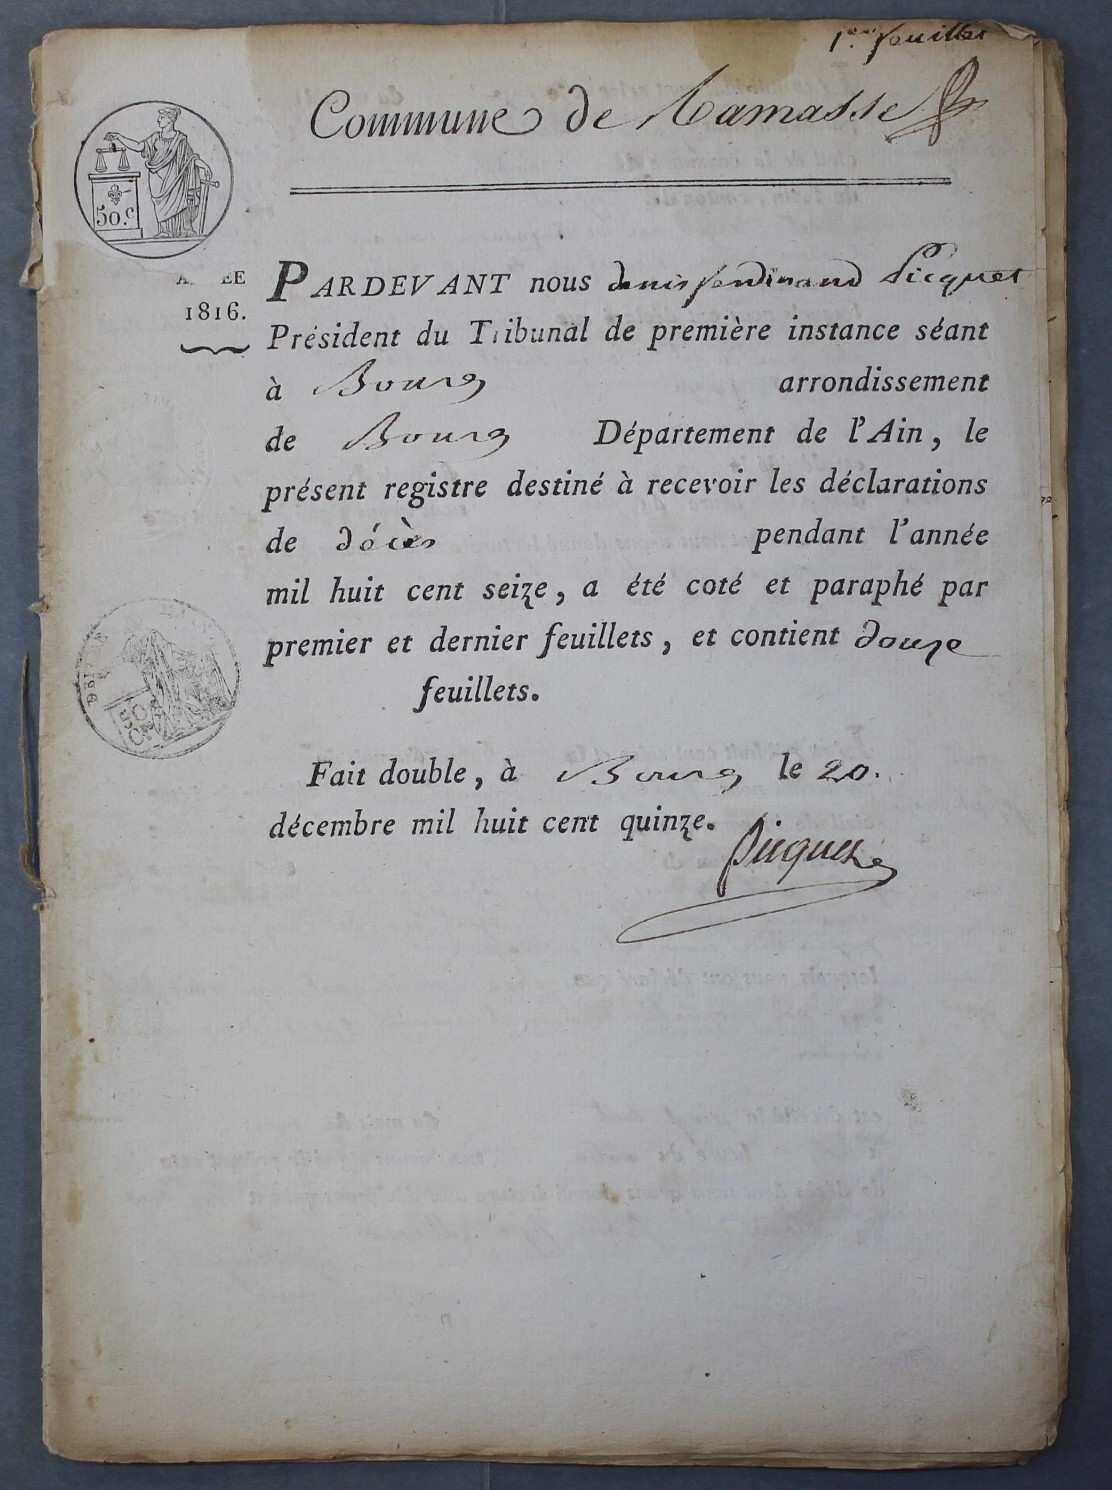 1er feuillet
Commune de Ramasse
50.c
ANNÉE
1816.
PARDEVANT nous denis ferdinand Picquet
Président du Tribunal de première instance séant
à Bourg arrondissement
de Bourg Département de l'Ain, le
présent registre destiné à recevoir les déclarations
de décès pendant l'année
mil huit cent seize, a été coté et paraphé par
premier et dernier feuillets, et contient douze
feuillets.
Fait double, à Bourg le 20.
décembre mil huit cent quinze.
Picquet